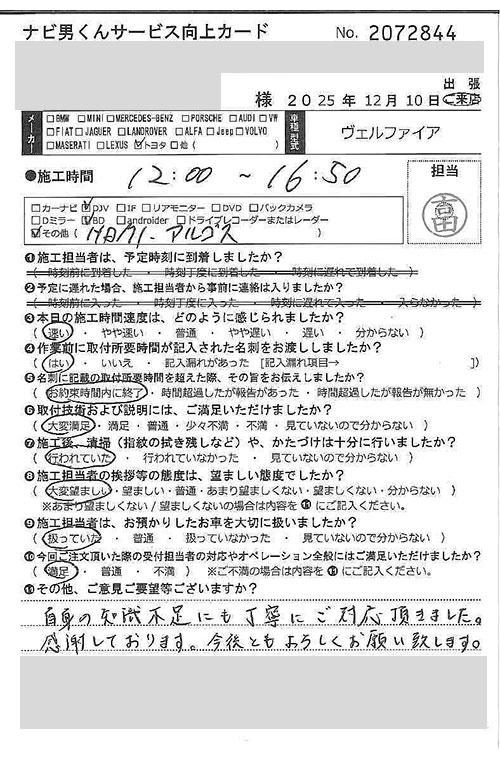 ナビ男くんサービス向上カード No. 2072844
出張
様 2025年12月10日 ご来店
メーカー □BMW □MINI □MERCEDES-BENZ □PORSCHE □AUDI □VW
□FIAT □JAGUER □LANDROVER □ALFA □Jeep □VOLVO
□MASERATI □LEXUS ☑トヨタ □他 ( )
車種型式 ヴェルファイア
●施工時間 12:00 ~ 16:50
担当
高田
□カーナビ ☑DJV □IF □リアモニター □DVD □バックカメラ
□Dミラー ☑BD □androider □ドライブレコーダーまたはレーダー
☑その他 ( HDMI・アルゴス )
❶施工担当者は、予定時刻に到着しましたか?
( 時刻前に到着した ・ 時刻丁度に到着した ・ 時刻に遅れて到着した )
❷予定に遅れた場合、施工担当者から事前に連絡は入りましたか?
( 時刻前に入った ・ 時刻丁度に入った ・ 時刻に遅れて入った ・ 入らなかった )
❸本日の施工時間速度は、どのように感じられましたか?
( 速い ・ やや速い ・ 普通 ・ やや遅い ・ 遅い ・ 分からない )
❹作業前に取付所要時間が記入された名刺をお渡ししましたか?
( はい ・ いいえ ・ 記入漏れがあった [記入漏れ項目→ ])
❺名刺に記載の取付所要時間を超えた際、その旨をお伝えしましたか?
( お約束時間内に終了 ・ 時間超過したが報告があった ・ 時間超過したが報告が無かった )
❻取付技術および説明には、ご満足いただけましたか?
( 大変満足 ・ 満足 ・ 普通 ・ 少々不満 ・ 不満 ・ 見ていないので分からない )
❼施工後、清掃(指紋の拭き残しなど)や、かたづけは十分に行いましたか?
( 行われていた ・ 行われていなかった ・ 見ていないので分からない )
❽施工担当者の挨拶等の態度は、望ましい態度でしたか?
( 大変望ましい ・ 望ましい ・ 普通 ・ あまり望ましくない ・ 望ましくない ・ 分からない )
※あまり望ましくない/望ましくないの場合は内容を⓫にご記入ください。
❾施工担当者は、お預かりしたお車を大切に扱いましたか?
( 扱っていた ・ 普通 ・ 扱っていなかった ・ 見ていないので分からない )
❿今回ご注文頂いた際の受付担当者の対応やオペレーション全般にはご満足いただけましたか?
( 満足 ・ 普通 ・ 不満 ) ※ご不満の場合は内容を⓫にご記入ください。
⓫その他、ご意見ご要望等ございますか?
自身の知識不足にも丁寧にご対応頂きました。
感謝しております。今後ともよろしくお願い致します。